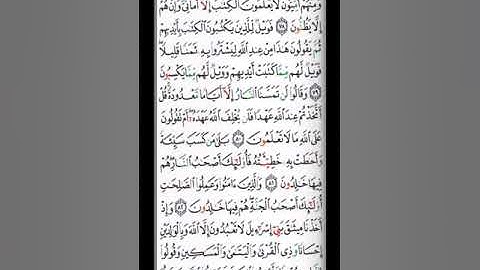 وَمِنْهُمْ أُمِّيُّونَ لَا يَعْلَمُونَ ٱلْكِتَٰبَ إِلَّآ أَمَانِىَّ وَإِنْ هُمْ
إِلَّا يَظُنُّونَ ٧٨ فَوَيْلٌ لِّلَّذِينَ يَكْتُبُونَ ٱلْكِتَٰبَ بِأَيْدِيهِمْ
ثُمَّ يَقُولُونَ هَٰذَا مِنْ عِندِ ٱللَّهِ لِيَشْتَرُوا۟ بِهِۦ ثَمَنًا قَلِيلًا
فَوَيْلٌ لَّهُم مِّمَّا كَتَبَتْ أَيْدِيهِمْ وَوَيْلٌ لَّهُم مِّمَّا يَكْسِبُونَ
٧٩ وَقَالُوا۟ لَن تَمَسَّنَا ٱلنَّارُ إِلَّآ أَيَّامًا مَّعْدُودَةً قُلْ
أَتَّخَذْتُمْ عِندَ ٱللَّهِ عَهْدًا فَلَن يُخْلِفَ ٱللَّهُ عَهْدَهُۥٓ أَمْ تَقُولُونَ
عَلَى ٱللَّهِ مَا لَا تَعْلَمُونَ ٨٠ بَلَىٰ مَن كَسَبَ سَيِّئَةً
وَأَحَٰطَتْ بِهِۦ خَطِيٓـَٔتُهُۥ فَأُو۟لَٰٓئِكَ أَصْحَٰبُ ٱلنَّارِ هُمْ
فِيهَا خَٰلِدُونَ ٨١ وَٱلَّذِينَ ءَامَنُوا۟ وَعَمِلُوا۟ ٱلصَّٰلِحَٰتِ
أُو۟لَٰٓئِكَ أَصْحَٰبُ ٱلْجَنَّةِ هُمْ فِيهَا خَٰلِدُونَ ٨٢ وَإِذْ
أَخَذْنَا مِيثَٰقَ بَنِىٓ إِسْرَٰٓءِيلَ لَا تَعْبُدُونَ إِلَّا ٱللَّهَ وَبِٱلْوَٰلِدَيْنِ
إِحْسَانًا وَذِى ٱلْقُرْبَىٰ وَٱلْيَتَٰمَىٰ وَٱلْمَسَٰكِينِ وَقُولُوا۟